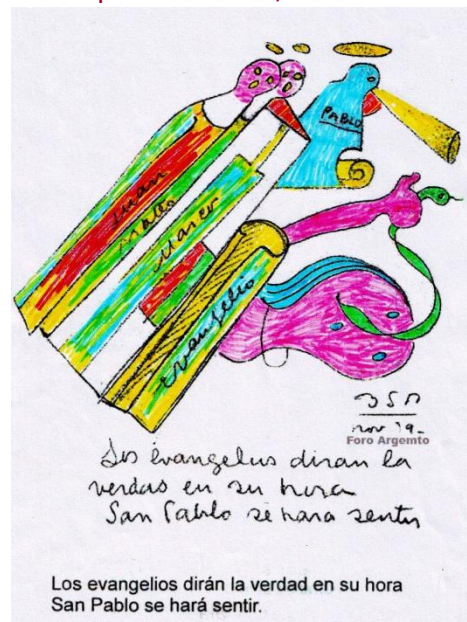 PABLO
Juan
Mateo
Marcos
Evangelio
BSP
nov 79-
Foro Argemto
Los evangelios diran la
verdad en su hora
San Pablo se hara sentir
Los evangelios dirán la verdad en su hora
San Pablo se hará sentir.